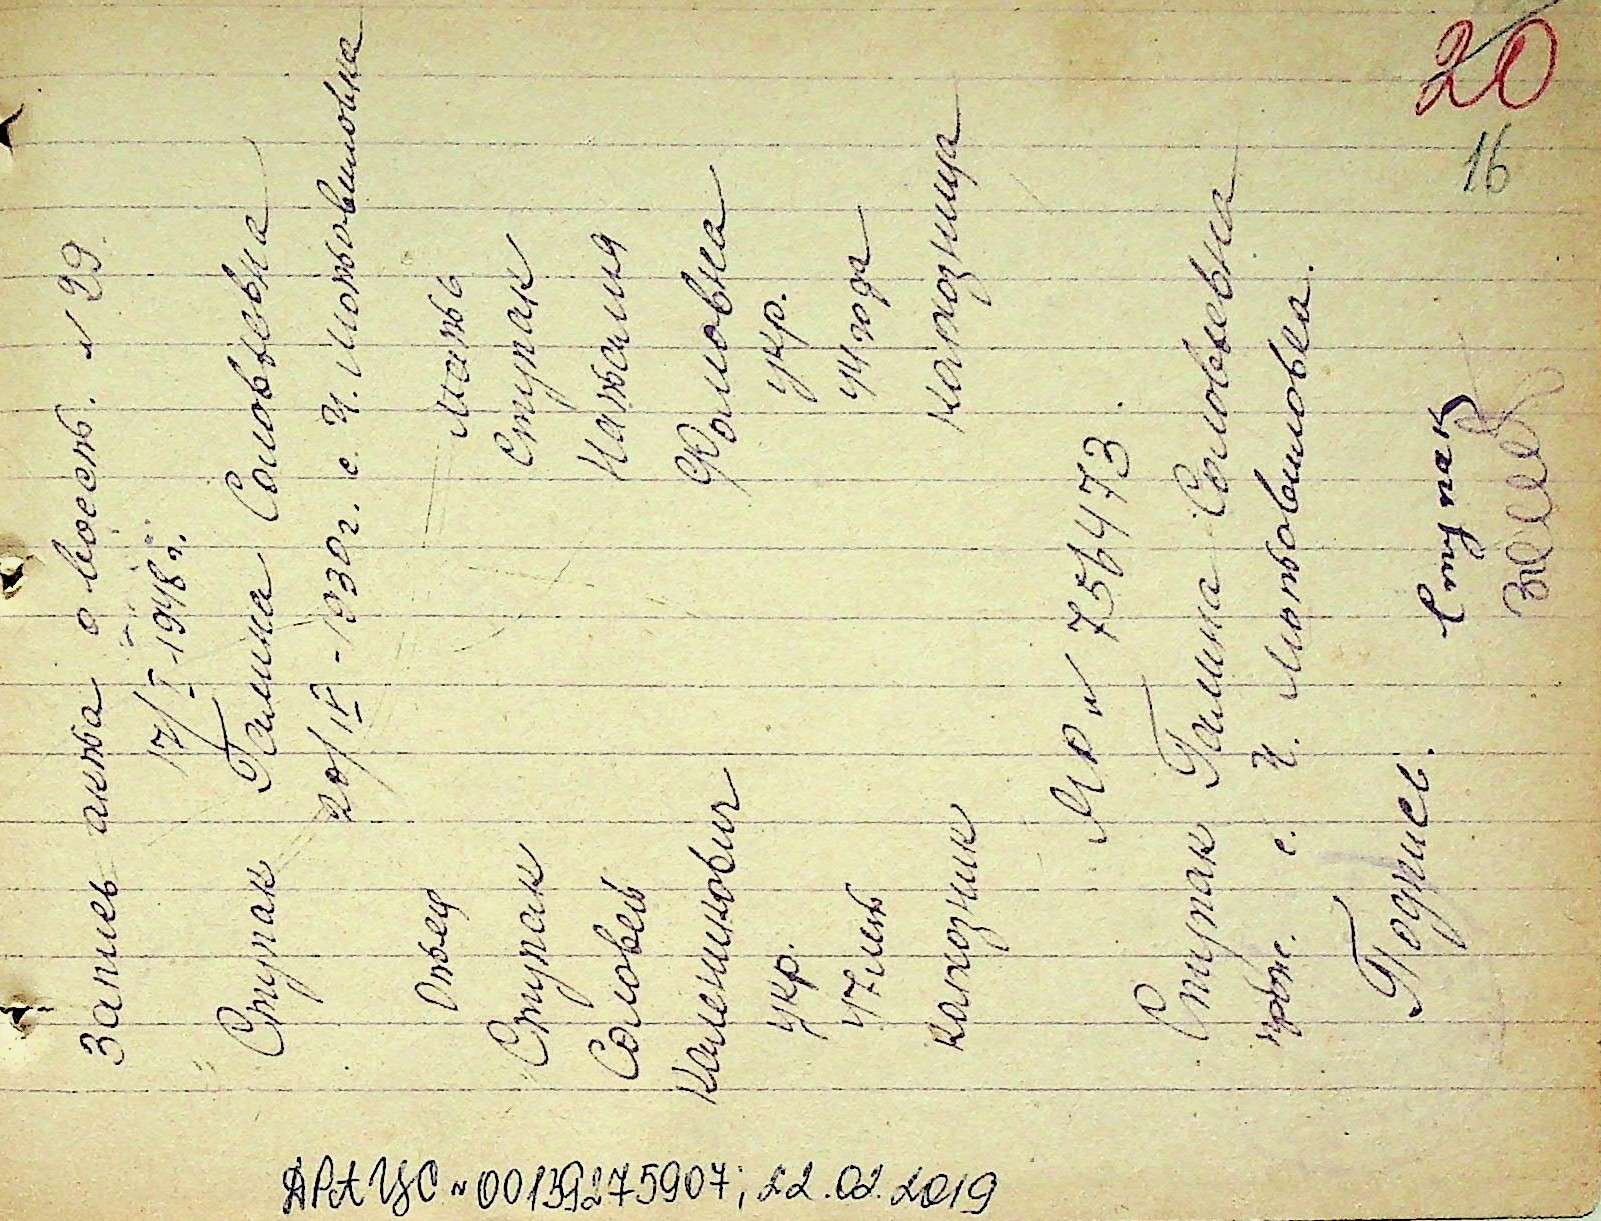 20
16
Запись акта о восст. № 29.
17/I-1948 г.
Ступак Галина Соловьевна
20/IV-1930 г. с. Ч. Мотовиловка
Отец Мать
Ступак Ступак
Соловей Наталия
Каленикович Фоловна
укр. укр.
47 лет 44 года
колхозник колхозница
ЯЮ № 756473.
Ступак Галина Соловьевна
прож. с. Ч. Мотовиловка.
Подпись. Ступак
ДРАЦС № 00139275907; 22.02.2019